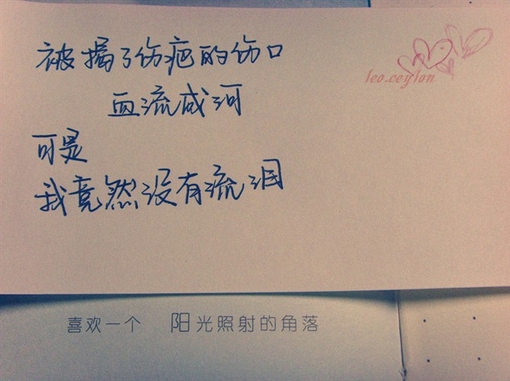 被揭了伤疤的伤口
血流成河
可是
我竟然没有流泪
leo.ceylon
喜欢一个 阳光照射的角落